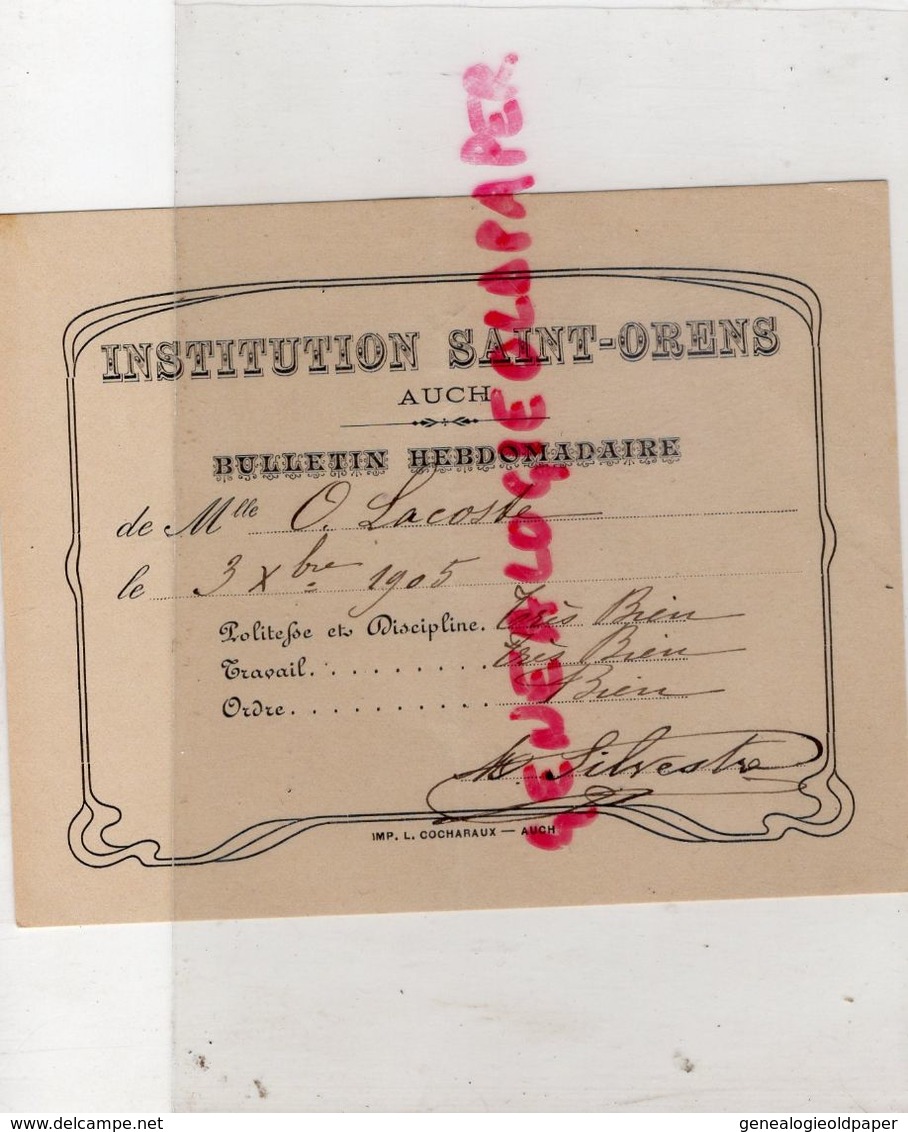 INSTITUTION SAINT-ORENS
AUCH
BULLETIN HEBDOMADAIRE
de Mlle O. Lacoste
le 3 Xbre 1905
Politesse et Discipline. Très Bien
Travail. . . . . . . . . . Très Bien
Ordre. . . . . . . . . . . Bien
Silvestre
IMP. L. COCHARAUX — AUCH
GENEALOGIEOLDPAPER.
genealogieoldpaper
delcampe.net